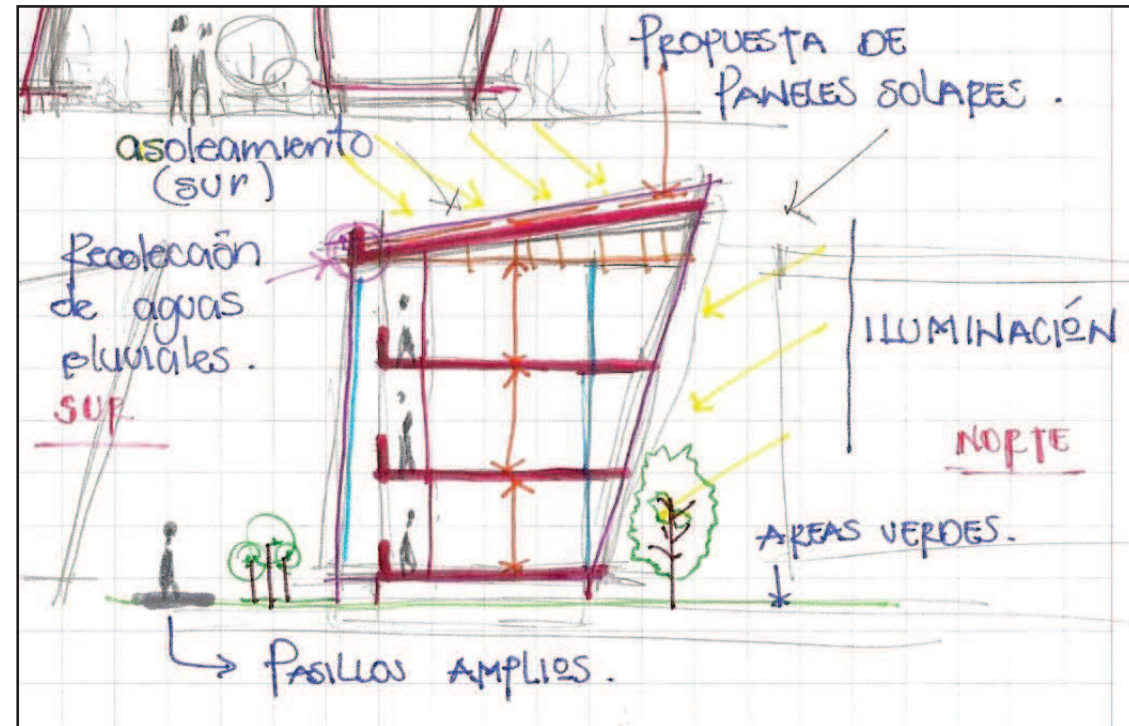 PROPUESTA DE
PANELES SOLARES.
asoleamiento
(sur)
Recolección
de aguas
pluviales.
SUR
ILUMINACIÓN
NORTE
AREAS VERDES.
PASILLOS AMPLIOS.